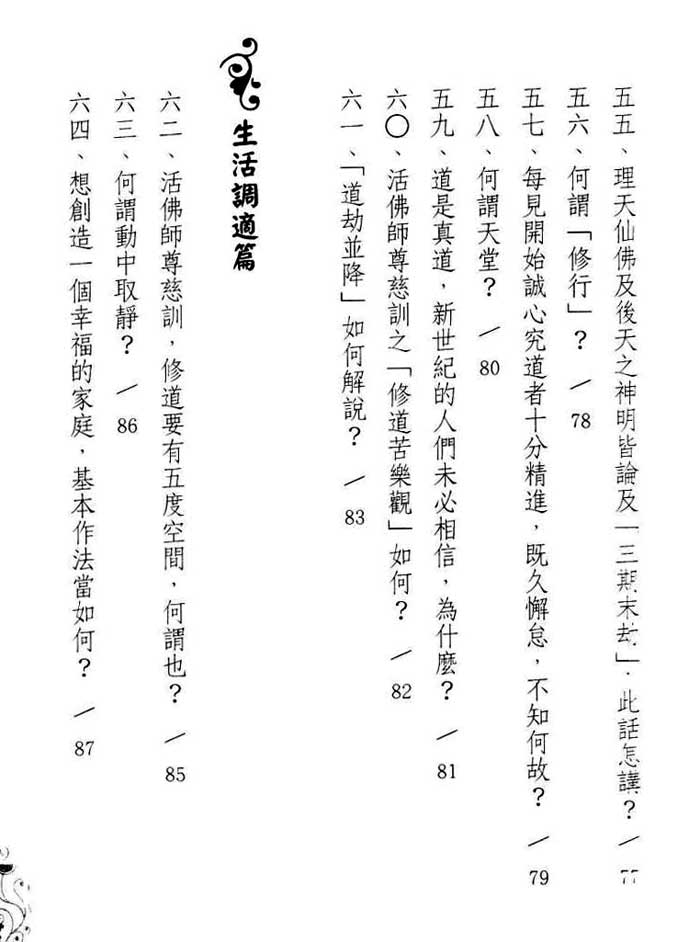 五五、理天仙佛及後天之神明皆論及「三期末劫」，此話怎講？／77
五六、何謂「修行」？／78
五七、每見開始誠心究道者十分精進，既久懈怠，不知何故？／79
五八、何謂天堂？／80
五九、道是真道，新世紀的人們未必相信，為什麼？／81
六〇、活佛師尊慈訓之「修道苦樂觀」如何？／82
六一、「道劫並降」如何解說？／83
生活調適篇
六二、活佛師尊慈訓，修道要有五度空間，何謂也？／85
六三、何謂動中取靜？／86
六四、想創造一個幸福的家庭，基本作法當如何？／87